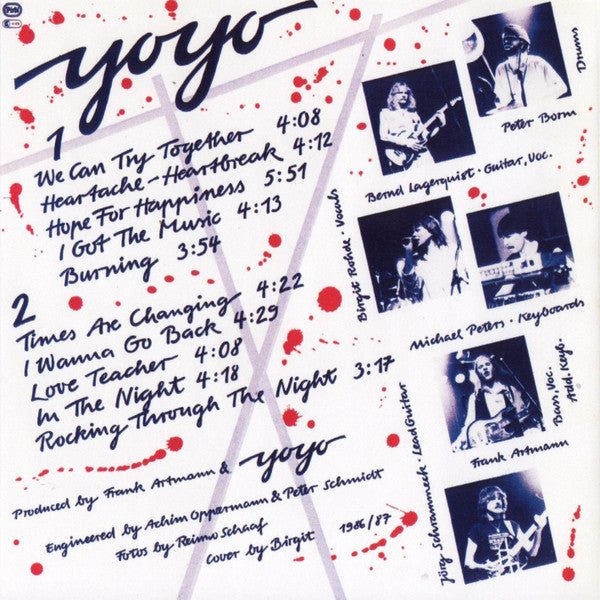 yoyo
1
We Can Try Together 4:08
Heartache-Heartbreak 4:12
Hope For Happiness 5:51
I Got The Music 4:13
Burning 3:54
2
Times Are Changing 4:22
I Wanna Go Back 4:29
Love Teacher 4:08
In The Night 4:18
Rocking Through The Night 3:17
Produced by Frank Artmann & yoyo
Engineered by Achim Oppermann & Peter Schmidt
Fotos by Reimo Schaaf
Cover by Birgit 1986/87
Drums
Peter Born
Bernd Lagerquist · Guitar, Voc.
Birgit Rohde · Vocals
Michael Peters · Keyboards
Bass, Voc.
Add. Keyb.
Frank Artmann
Jörg Schrammeck · Lead Guitar